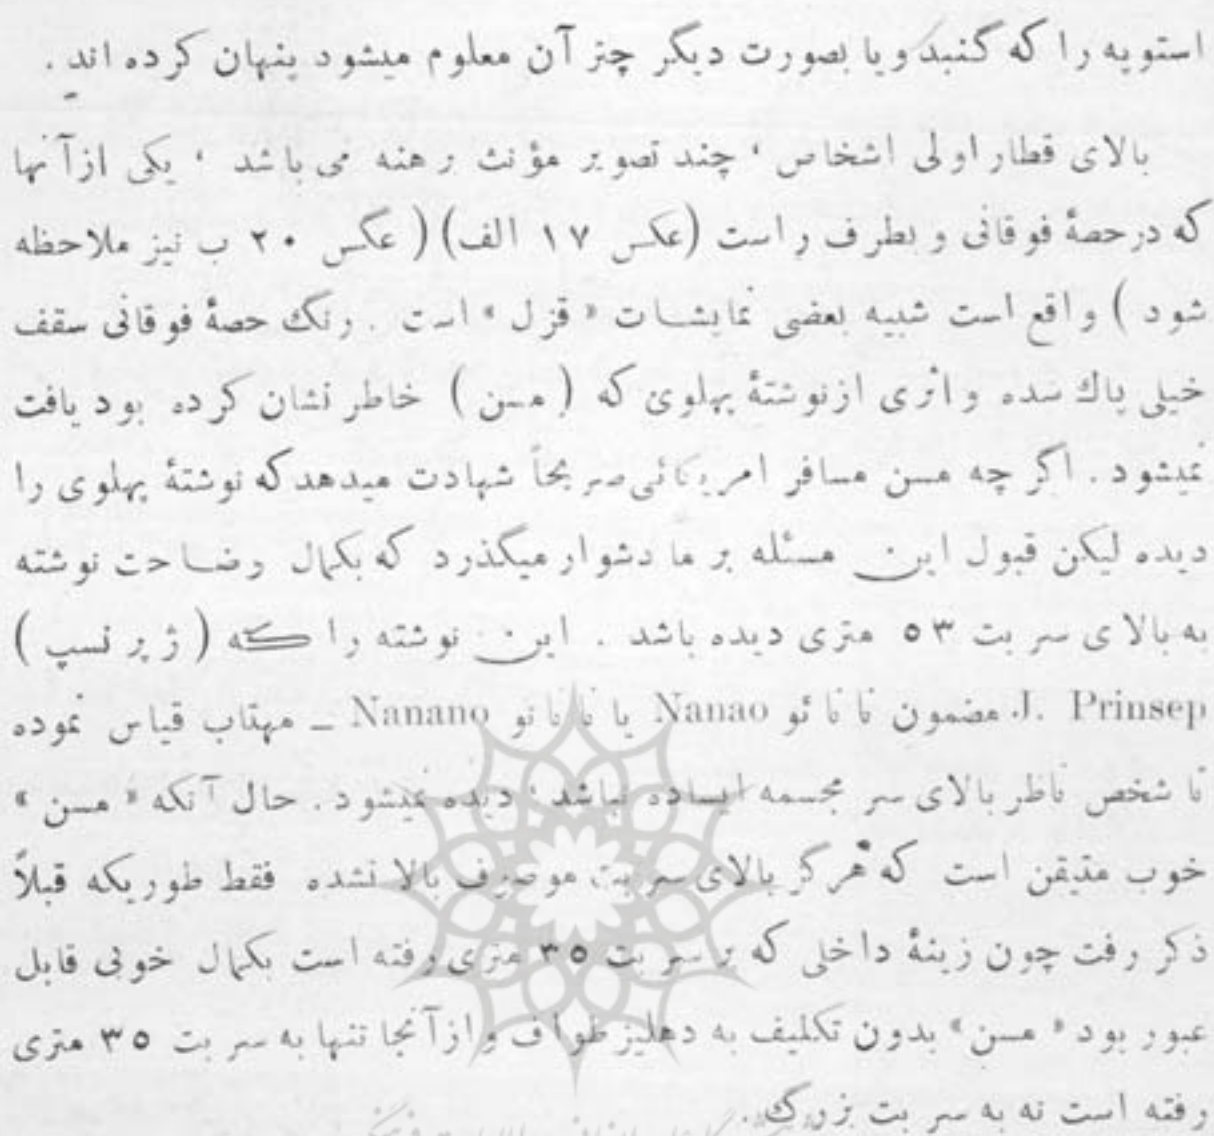 استوپه را که گنبد ویا بصورت دیگر چتر آن معلوم میشود پنهان کرده اند .
بالای قطار اولی اشخاص ، چند تصویر مؤنث برهنه می باشد ، یکی ازآنها
که درحصهٔ فوقانی و بطرف راست (عکس ۱۷ الف) ( عکس ۲۰ ب نیز ملاحظه
شود ) واقع است شبیه بعضی نمایشات « قزل » است . رنگ حصهٔ فوقانی سقف
خیلی پاك شده و اثری ازنوشتهٔ پهلوی که ( مسن ) خاطر نشان کرده بود یافت
نمیشود . اگر چه مسن مسافر امریکائی صریحاً شهادت میدهد که نوشتهٔ پهلوی را
دیده لیکن قبول این مسئله بر ما دشوار میگذرد که بکمال وضاحت نوشته
به بالای سر بت ۵۳ متری دیده باشد . این نوشته را که ( ژ پر نسپ )
J. Prinsep مضمون نا نا ئو Nanao یا نا نا نو Nanano ــ مهتاب قیاس نموده
تا شخص ناظر بالای سر مجسمه ایساده نباشد ، دیده نمیشود . حال آنکه « مسن »
خوب متیقن است که هرگز بالای سر بت موصوف بالا نشده فقط طوریکه قبلاً
ذکر رفت چون زینهٔ داخلی که تا سر بت ۳۵ متری رفته است بکمال خوبی قابل
عبور بود « مسن » بدون تکلیف به دهلیز طواف و ازآنجا تنها به سر بت ۳۵ متری
رفته است نه به سر بت بزرگ .